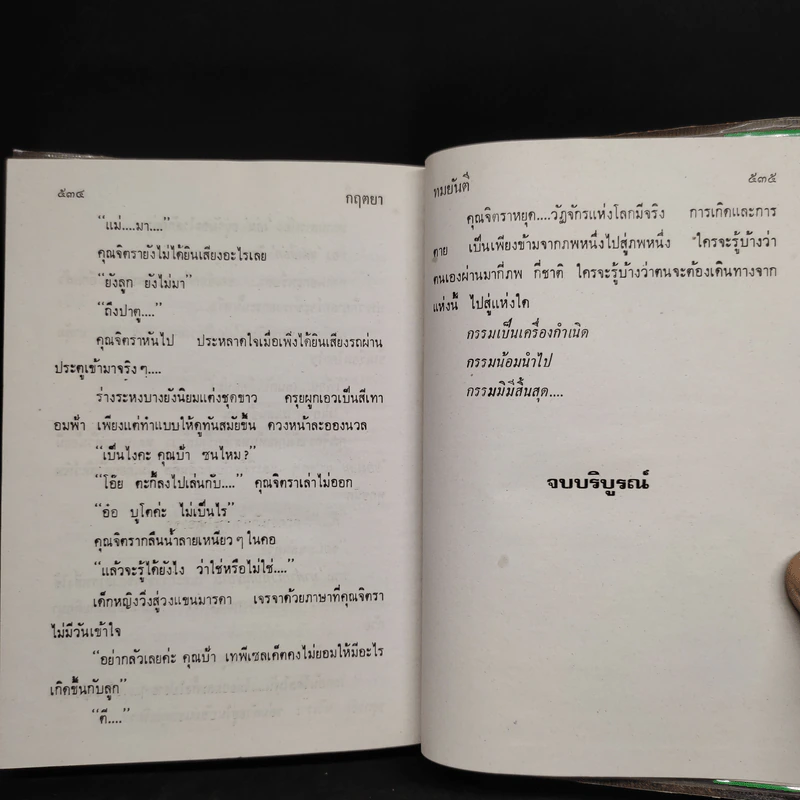 ๕๓๔ กฤตยา
“แม่....มา....”
คุณจิตรายังไม่ได้ยินเสียงอะไรเลย
“ยังลูก ยังไม่มา”
“ถึงปาตู....”
คุณจิตราหันไป ประหลาดใจเมื่อเพิ่งได้ยินเสียงรถผ่าน
ประตูเข้ามาจริงๆ....
ร่างระหงบางยังนิยมแต่งชุดขาว ครุยผูกเอวเป็นสีเทา
อมฟ้า เพียงแต่ทำแบบให้ดูทันสมัยขึ้น ดวงหน้าละอองนวล
“เป็นไงคะ คุณป้า ซนไหม?”
“โอ๊ย ตะกี้ลงไปเล่นกับ....” คุณจิตราเล่าไม่ออก
“อ๋อ บูโตค่ะ ไม่เป็นไร”
คุณจิตรากลืนน้ำลายเหนียวๆ ในคอ
“แล้วจะรู้ได้ยังไง ว่าใช่หรือไม่ใช่....”
เด็กหญิงวิ่งสู่วงแขนมารดา เจรจาด้วยภาษาที่คุณจิตรา
ไม่มีวันเข้าใจ
“อย่ากลัวเลยค่ะ คุณป้า เทพีเซลเค็ตคงไม่ยอมให้มีอะไร
เกิดขึ้นกับลูก”
“ดี....”
ทมยันตี ๕๓๕
คุณจิตราหยุด....วัฏจักรแห่งโลกมีจริง การเกิดและการ
ตาย เป็นเพียงข้ามจากภพหนึ่งไปสู่ภพหนึ่ง ใครจะรู้บ้างว่า
ตนเองผ่านมากี่ภพ กี่ชาติ ใครจะรู้บ้างว่าตนจะต้องเดินทางจาก
แห่งนี้ ไปสู่แห่งใด
กรรมเป็นเครื่องกำเนิด
กรรมน้อมนำไป
กรรมมิมีสิ้นสุด....
จบบริบูรณ์